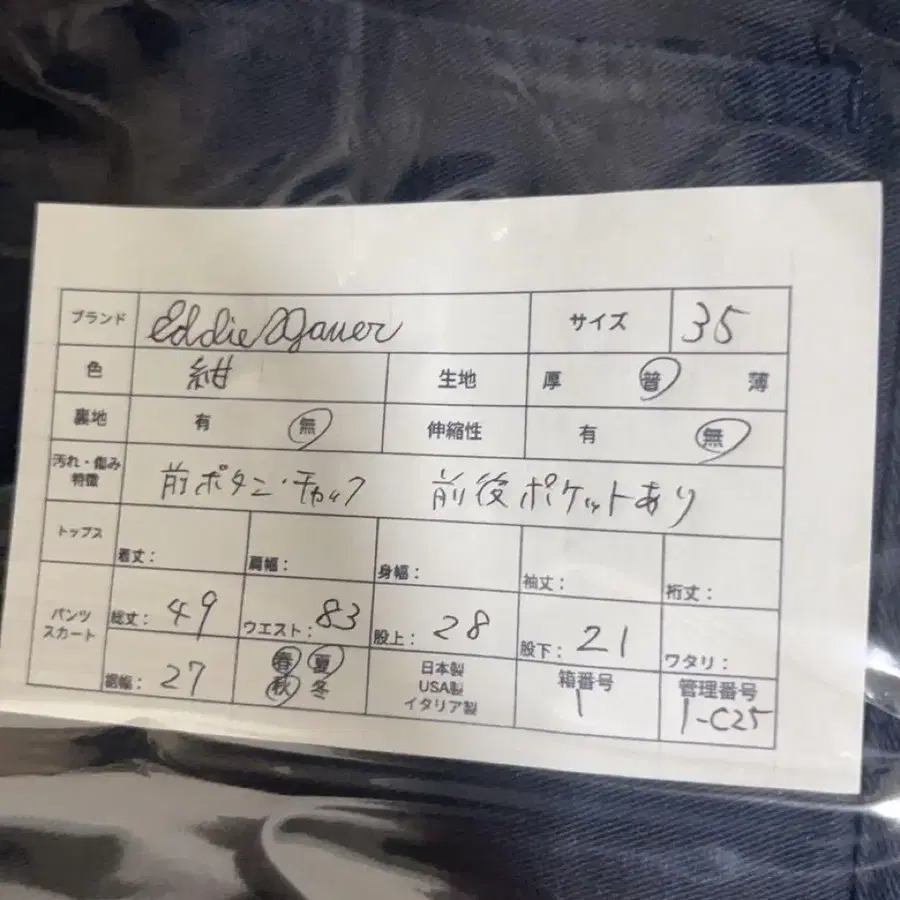 ブランド Eddie Bauer サイズ 35
色 紺 生地 厚 普 薄
裏地 有 無 伸縮性 有 無
汚れ・傷み
特徴 前ボタン・チャック 前後ポケットあり
トップス 着丈: 肩幅: 身幅: 袖丈: 裄丈:
パンツ
スカート 総丈: 49 ウエスト: 83 股上: 28 股下: 21 ワタリ:
裾幅: 27 春 夏
秋 冬
日本製
USA製
イタリア製
箱番号
1
管理番号
1-C25